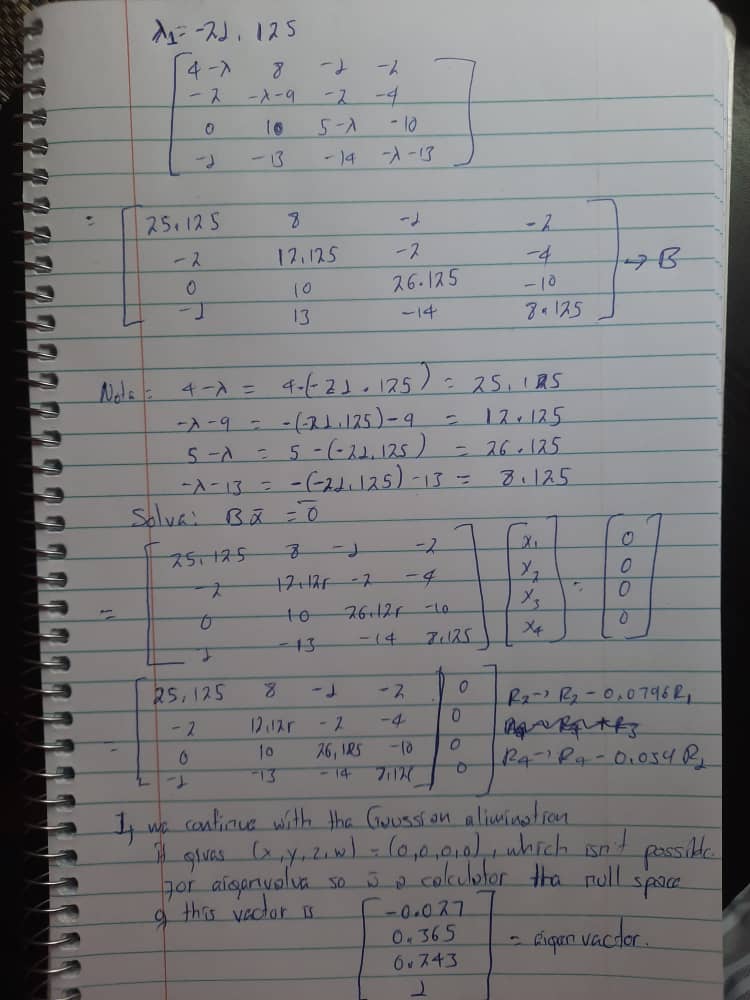 λ1 = -21.125
4-λ 8 -1 -2
-2 -λ-9 -2 -4
0 10 5-λ -10
-1 -13 -14 -λ-13
= 25.125 8 -1 -2
-2 12.125 -2 -4 → B
0 10 26.125 -10
-1 13 -14 8.125
Note = 4-λ = 4-(-21.125) = 25.125
-λ-9 = -(-21.125)-9 = 12.125
5-λ = 5-(-21.125) = 26.125
-λ-13 = -(-21.125)-13 = 8.125
Solve: Bx̄ = 0̄
25.125 8 -1 -2 x1 0
-2 12.125 -2 -4 x2 0
= 0 10 26.125 -10 x3 = 0
1 -13 -14 8.125 x4 0
25.125 8 -1 -2 0 R2→ R2 - 0.0796R1
-2 12.125 -2 -4 0
= 0 10 26.125 -10 0 R4→ R4 - 0.054 R2
-1 -13 -14 8.125 0
If we continue with the Gaussion elimination
it gives (x,y,z,w) = (0,0,0,0), which isn't possible
for eigenvalue so a calculator the null space
of this vector is -0.027
0.365
0.243 = eigen vector.
1